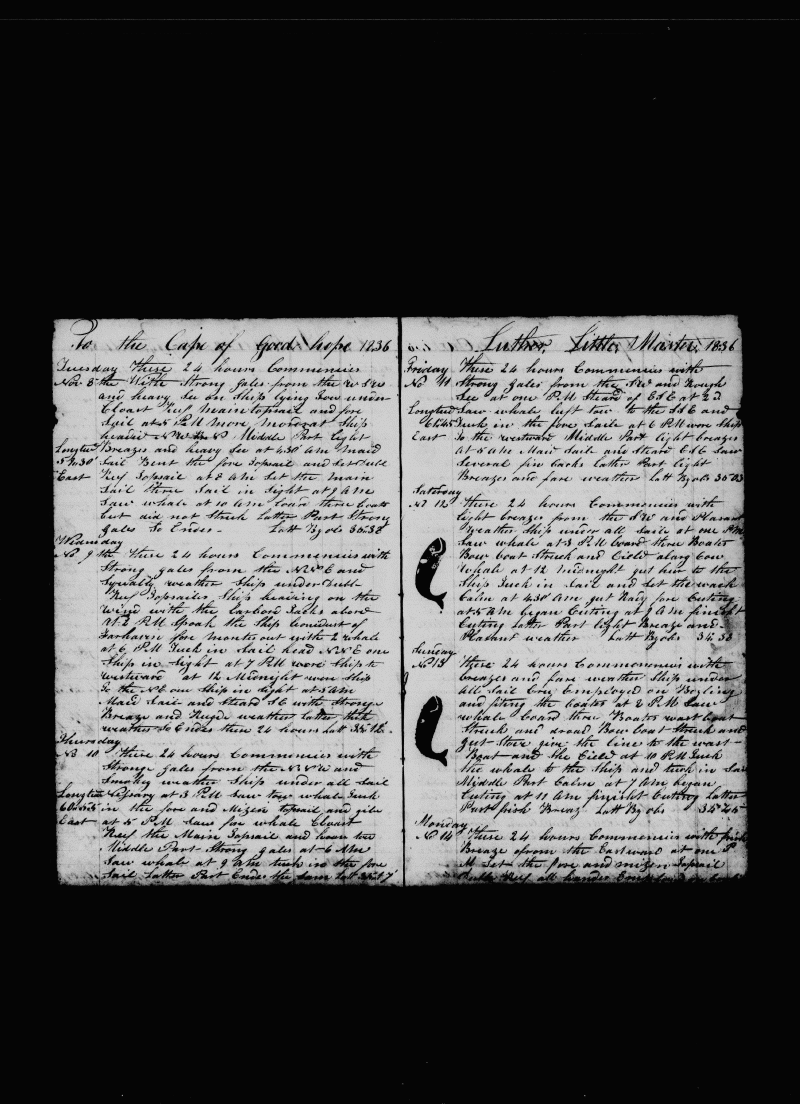 To the Cape of Good hope 1836
Tuesday These 24 hours Commencies
Nov 8 the With Strong gales from the W S W
and heavy See on Ship lying Tow under
Cloast Reef main topsail and fore
Sail at 5 P M more Ship
heading Middle Part light
Breazes and heavy See at 4.30 A M maid
Sail Bent the fore topsail and Set Dubl
East Reef topsail at 8 A M Set the main
Sail three Sail in Sight at 9 A M
Saw whale at 10 A M Loard three boats
but did not Struck Latter Part Strong
gales So Ends Latt By obs
Wedensday
No 9 the These 24 hours Commencies with
Strong gales from the N N E and
Squally weather Ship under Dubl
Reef Topsailes Ship heading on the
wind with the Larbord Tacks abord
at 2 P M Spoak the Ship of
Farhaven five months out with 2 whale
at 6 P M Tuck in Sail head N N E one
Ship in Sight at 7 P M wore Ship to
westward at 12 Midnight wore Ship
To the N E one Ship in Sight at 5 A M
Maid Sail and Steard S E with Strong
Breaze and weather latter
weather So Endes these 24 hours Latt
Thursday
No 10 These 24 hours Commencies with
Strong gales from the N N W and
Smoky weather Ship under all Sail
at 3 P M Saw whale Tuck
in the fore and Mizen topsail and
East at 5 P M Saw for whale Cloast
Reef the Main Topsail and
Middle Part Strong gales at 6 A M
Saw whale at 9 A M tuck in the fore
Sail Latter Part Endes the Sam Latt
Luther Little Master 1836
Friday These 24 hours Commencies with
No 11 Strong gales from the S W and Rough
See at one P M Steard of E S E at 2
Saw whale left tow to the S S E and
Tuck in the fore Saile at 6 P M wore Ship
East To the westward Middle Part light breazes
at 5 A M Maid Sail and Steard E S E Saw
Several fin backs Latter Part light
Breazes and fare weather Latt By obs
Saturday
No 12 These 24 hours Commencies with
light breazes from the S W and Plasant
weather Ship under all Saile at one P M
Saw whale at 3 P M Loard three Boats
Bow Boat Struck and Cild along Cow
Whale at 12 Midnight got him to the
Ship Tuck in Sail and Set the wach
Calm at 4.30 A M got Rady for Cuting
at 5 A M began Cuting at 9 A M finisht
Cuting Latter Part light Breaze and
Plasant weather Latt By obs
Sunday
No 13 These 24 hours Commencies with
Breazes and fare weather Ship under
all Sail Crew Employed on Boyling
and fiting the boats at 2 P M Saw
whale Loard three Boats wast boat
Struck and Bow Boat Struck and
got Stove give the line to the wast
Boat and She Cild at 10 P M Tuck
the whale to the Ship and tuck in Sail
Middle Part Calm at 7 A M began
Cuting at 11 A M finisht Cuting Latter
Part Breaz Latt By obs
Monday
No 14 These 24 hours Commencies with
Breaze from the Eastward at one P
M Set the fore and mizen Topsail
Dubl Reef all handes